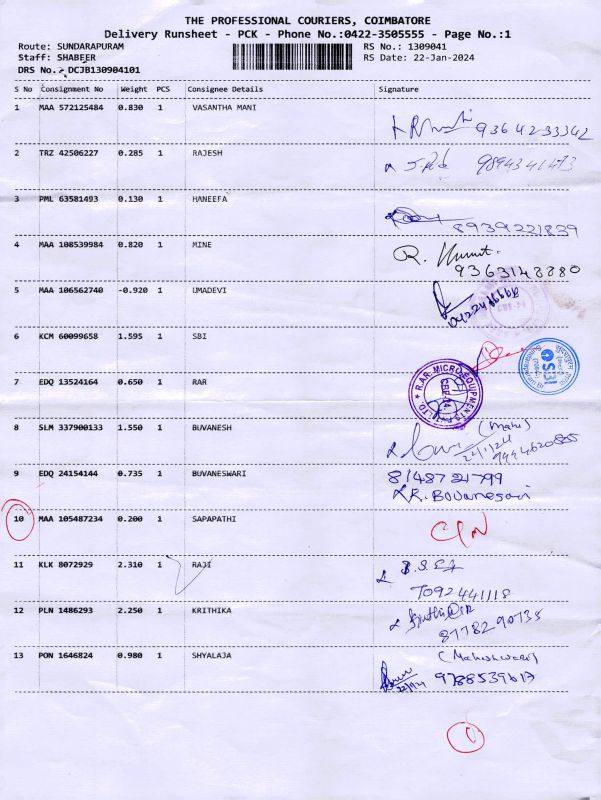 THE PROFESSIONAL COURIERS, COIMBATORE
Delivery Runsheet - PCK - Phone No.:0422-3505555 - Page No.:1
Route: SUNDARAPURAM RS No.: 1309041
Staff: SHABEER RS Date: 22-Jan-2024
DRS No.:-DCJB130904101
S No Consignment No Weight PCS Consignee Details Signature
1 MAA 572125484 0.830 1 VASANTHA MANI
9364233342
2 TRZ 42506227 0.285 1 RAJESH
9894341473
3 PML 63581493 0.130 1 HANEEFA
8939221839
4 MAA 108539984 0.820 1 MINE
R.
9363148880
5 MAA 106562740 -0.920 1 UMADEVI
6 KCM 60099658 1.595 1 SBI
SBI
7 EDQ 13524164 0.650 1 RAR
R.A.R MICRO EQUIPMENTS
8 SLM 337900133 1.550 1 BUVANESH
(Mahi)
22/1/24
9444620855
9 EDQ 24154144 0.735 1 BUVANESWARI
8148721799
R. Bouanesari
10 MAA 105487234 0.200 1 SAPAPATHI
C/N
11 KLK 8072929 2.310 1 RAJI
7092441118
12 PLN 1486293 2.250 1 KRITHIKA
8778290735
13 PON 1646824 0.980 1 SHYALAJA
(Maheshwari)
22/1/24 9788539617
1